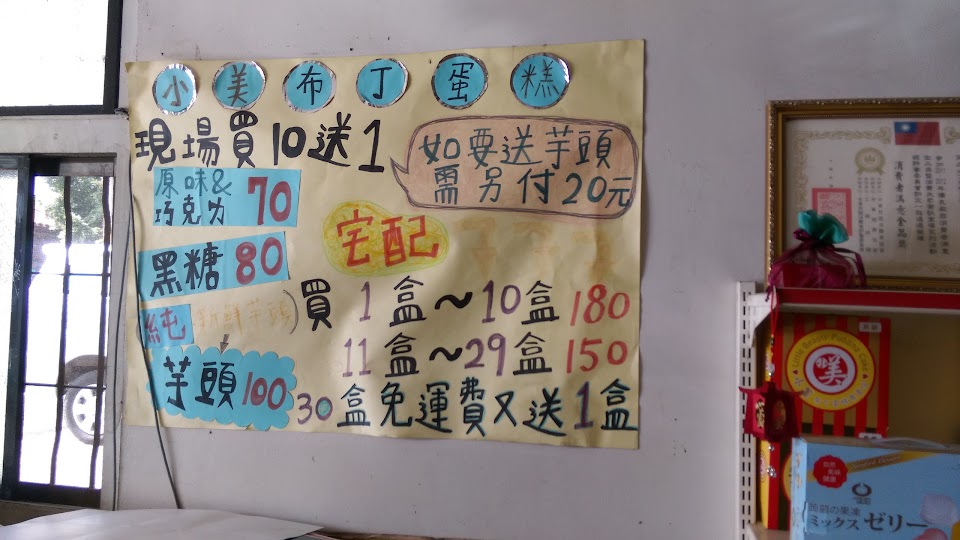 小美布丁蛋糕
現場買10送1
如要送芋頭
需另付20元
原味&
巧克力 70
黑糖 80
(純新鮮芋頭)
芋頭100
宅配
買 1盒～10盒 180
11盒～29盒 150
30盒免運費又送1盒
消費者滿意金品獎
美
自然
風味
健康
ミックスゼリー